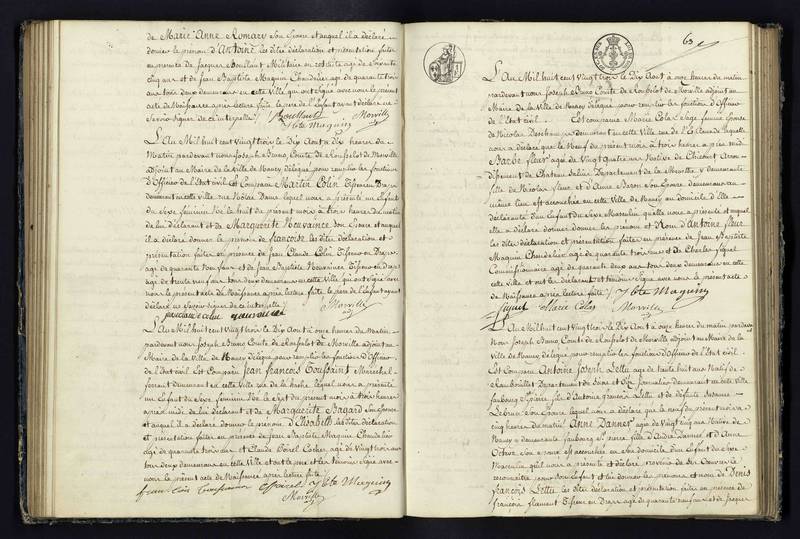 de Marie Anne Romary son Epouse et auquel il a déclaré
donner le prénom d'Antoine les dites déclaration et présentation faites
en présence de Jacques Bouillant Militaire en retraite agé de soixante
cinq ans et de Jean Baptiste Maguin Chaudelier agé de quarante trois
ans tous deux demeurans en cette Ville qui ont signé avec nous le présent
acte de Naissance après lecture faite, le père de l'Enfant ayant déclaré ne
savoir signer de ce interpellé
Jbte Maguin Morville
L'An Mil huit cent Vingt trois le Dix Aout à Dix heures du
Matin pardevant nous Joseph Bruno Comte de Rousselot de Morville
adjoint au Maire de la Ville de Nancy délégué pour remplir les fonctions
d'Officier de l'Etat civil Est Comparu Martin Colin Tisseran en Draps
demeurant en cette ville rue Notre Dame lequel nous a présenté un Enfant
du Sexe féminin né le huit du présent mois à trois heures du matin
de lui déclarant et de Marguerite Nouvaince son Epouse et auquel
il a déclaré donner le prénom de françoise les dites déclaration et
présentation faites en présence de Jean Claude Colin Tisseran en Draps
agé de quarante Neuf ans et de Jean Baptiste Nouvaince Tisseran en draps
agé de trente neuf ans tous deux demeurans en cette Ville qui ont signé avec
nous le présent acte de Naissance après lecture faite, le père de l'Enfant ayant
déclaré ne savoir signer de ce interpellé
jean claude colin Morville
L'An Mil huit cent Vingt trois le Dix Aout à onze heures du Matin
pardevant nous Joseph Bruno Comte de Rousselot de Morville adjoint au
Maire de la Ville de Nancy délégué pour remplir les fonctions d'Officier
de l'Etat civil Est Comparu Jean françois Toussaint Maréchal
ferrant demeurant en cette Ville rue de la hache lequel nous a présenté
un Enfant du Sexe féminin né le Sept du présent mois à trois heures
après midi de lui déclarant et de Marguerite Bagard son Epouse
et auquel il a déclaré donner le prénom d'Elisabeth les dites déclaration
et présentation faites en présence de Jean Baptiste Maguin Chaudelier
agé de quarante trois ans et Claude Poirel Cocher agé de Vingt trois ans
tous deux demeurans en cette Ville et ont le père et les témoins signé avec
nous le présent acte de Naissance après lecture faite
jean louis Toussaint Cpoirel Jbte Maguin
Morville
63
L'An Mil huit cent Vingt trois le Dix Aout à onze heures du matin
pardevant nous Joseph Bruno Comte de Rousselot de Morville adjoint au
Maire de la Ville de Nancy délégué pour remplir les fonctions d'Officier
de l'Etat civil Est comparue Marie Colas Sage femme Epouse
de Nicolas Deschamps demeurant en cette Ville rue de laquelle
nous a déclaré que le Neuf du présent mois à trois heures après midi
Barbe fleur agée de Vingt quatre ans Native de Chicourt Arron-
dissement de Chateau Salins Département de la Meurthe y demeurante
fille de Nicolas fleur et d'Anne Baron son Epouse demeurans au
même lieu est accouchée en cette Ville de Nancy au domicile d'Elle
déclarante d'un Enfant du Sexe Masculin qu'elle nous a présenté et auquel
elle a déclaré donner donner les prénom et Nom d'Antoine fleur
les dites déclaration et présentation faites en présence de Jean Baptiste
Maguin Chaudelier agé de quarante trois ans et de Charles
Commissionnaire agé de quarante deux ans tous deux demeurans en cette
cette ville et ont la déclarante et témoins signé avec nous le présent acte
de Naissance après lecture faite Jbte Maguin
Marie Colas Morville
L'An Mil huit cent Vingt trois le Dix Aout à onze heures du matin pardevant
Nous Joseph Bruno Comte de Rousselot de Morville adjoint au Maire de la
ville de Nancy délégué pour remplir les fonctions d'Officier de l'Etat civil
Est Comparu Antoine Joseph Lettu agé de trente huit ans Natif de
Rambouillet Département de Seine et Oise demeurant en cette Ville
faubourg St pierre fils d'Antoine françois Lettu et de défunte
Lebrun son Epouse lequel nous a déclaré que le neuf du présent mois à
cinq heures du matin Anne Danner agée de Vingt cinq ans Native de
Nancy y demeurante faubourg St pierre fille d'André Danner et d'Anne
son Epouse est accouchée en son domicile d'un Enfant du Sexe
Masculin qu'il nous a présenté et déclaré provenir de ses Oeuvres le
reconnaitre pour son Enfant et lui donner les prénoms et nom de Denis
françois Lettu les dites déclaration et présentation faites en présence de
françois flament Tisseran en Draps agé de quarante neuf ans et de Jacques